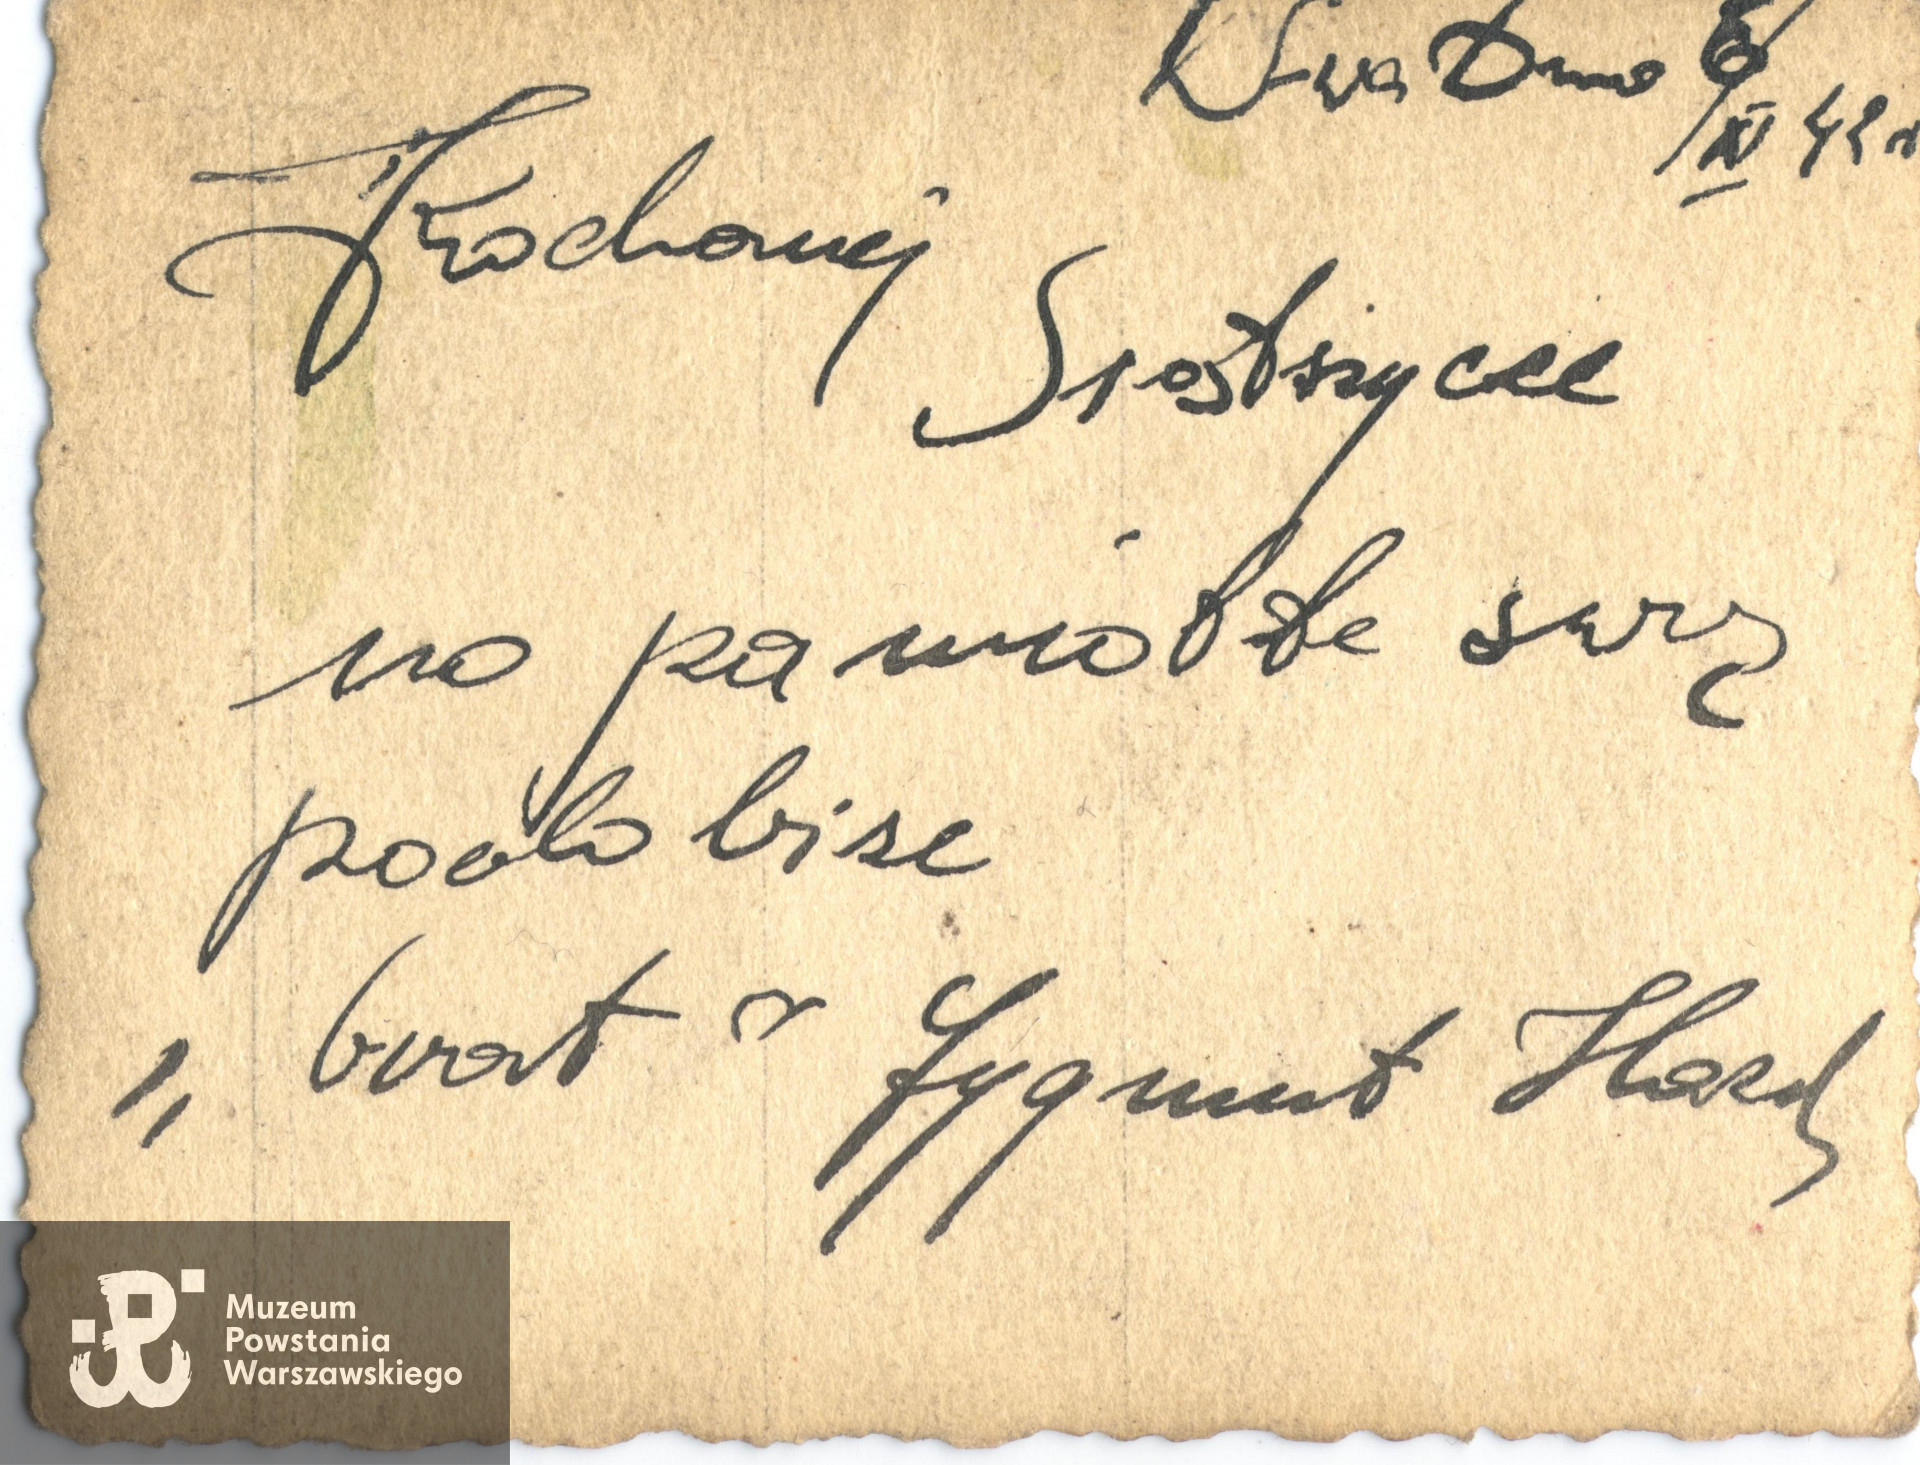 W-wa Dnia 6/XI 42 r
Kochanej
Siostrzyce
na pamiątke swą
podobise
"brat" Zygmunt
Muzeum
Powstania
Warszawskiego